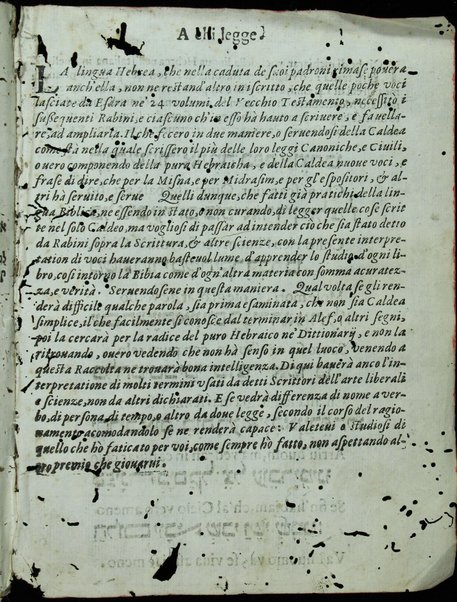 A chi legge.
LA lingua Hebrea, che nella caduta de suoi padroni rimase povera
anch'ella, non ne restand altro in iscritto, che quelle poche voci
lasciate da Esdra ne' 24 volumi, del Vecchio Testamento, necessitò i
susseguenti Rabini, e ciascuno ch'in esso hà hauto a scriuere, e fauella-
re, ad ampliarla. Il che fecero in due maniere, o seruendosi della Caldea
come stà nella quale scrissero il più delle loro leggi Canoniche, e Ciuili,
ouero componendo della pura Hebraicha, e della Caldea nuoue voci, e
frase di dire, che per la Misna, e per Midrasim, e per gl'espositori, & al-
tri hà seruito, e serue Quelli dunque, che fatti già pratichi della lin-
gua Biblica, ne essendo in stato, o non curando, di legger quelle cose scrit-
te nel solo Caldeo, ma vogliosi di passar ad intender ciò che sia stato detto
da Rabini sopra la Scrittura, & altre scienze, con la presente interpre-
tation di voci haueranno basteuol lume d'apprender lo studio d'ogni li-
bro, cosi intorno la Bibia come d'ogn'altra materia con somma acuratez-
za, e verità. Seruendosene in questa maniera. Qual volta se gli ren-
derà difficile qualche parola, sia prima esaminata, che non sia Caldea
simplice, il che facilmente si conosce dal terminar in Alef, o altri segni,
poi la cercarà per la radice del puro Hebraico ne' Dittionarij, e non la
ritrouando, ouero vedendo che non hà senso in quel luoco, venendo a
questa Raccolta ne trouarà bona intelligenza. Di qui bauerà anco l'in-
terpretatione di molti termini vsati da detti Scrittori dell'arte liberali
e scienze, non da altri dichiarati. E se vedrà differenza di nome a ver-
bo, di persona, di tempo, o altro da doue leggè, secondo il corso del ragio-
namento acomodandolo se ne renderà capace. Valeteui o studiosi di
quello che hò faticato per voi, come sempre hò fatto, non aspettando al-
tro premio che giouarui.